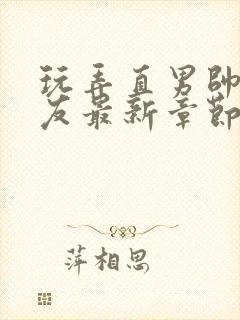 玩弄直男帥
友最新章節
萍相思